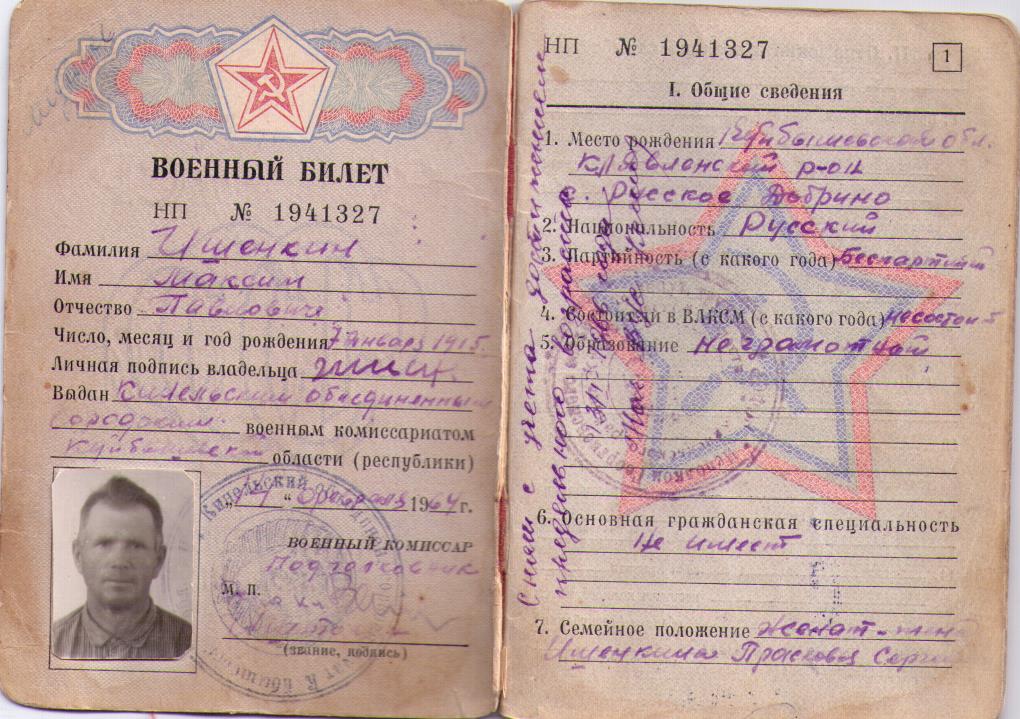 ВОЕННЫЙ БИЛЕТ
НП № 1941327
Фамилия Ишенкин
Имя Максим
Отчество Павлович
Число, месяц и год рождения 7 января 1915
Личная подпись владельца
Выдан Кинельским объединенным
городским военным комиссариатом
Куйбышевской области (республики)
февраля 1964 г.
ВОЕННЫЙ КОМИССАР
Подполковник
М. П.
(звание, подпись)
НП № 1941327
1
I. Общие сведения
1. Место рождения Куйбышевская обл.
Клявленский р-он
с. Русское Добрино
2. Национальность Русский
3. Партийность (с какого года) беспартийный
4. Состоял ли в ВЛКСМ (с какого года) не состоял
5. Образование Не грамотный
6. Основная гражданская специальность
Не имеет
7. Семейное положение Женат - жена
Ишенкина Прасковья Серге
Снят с учета по достижении
предельного возраста